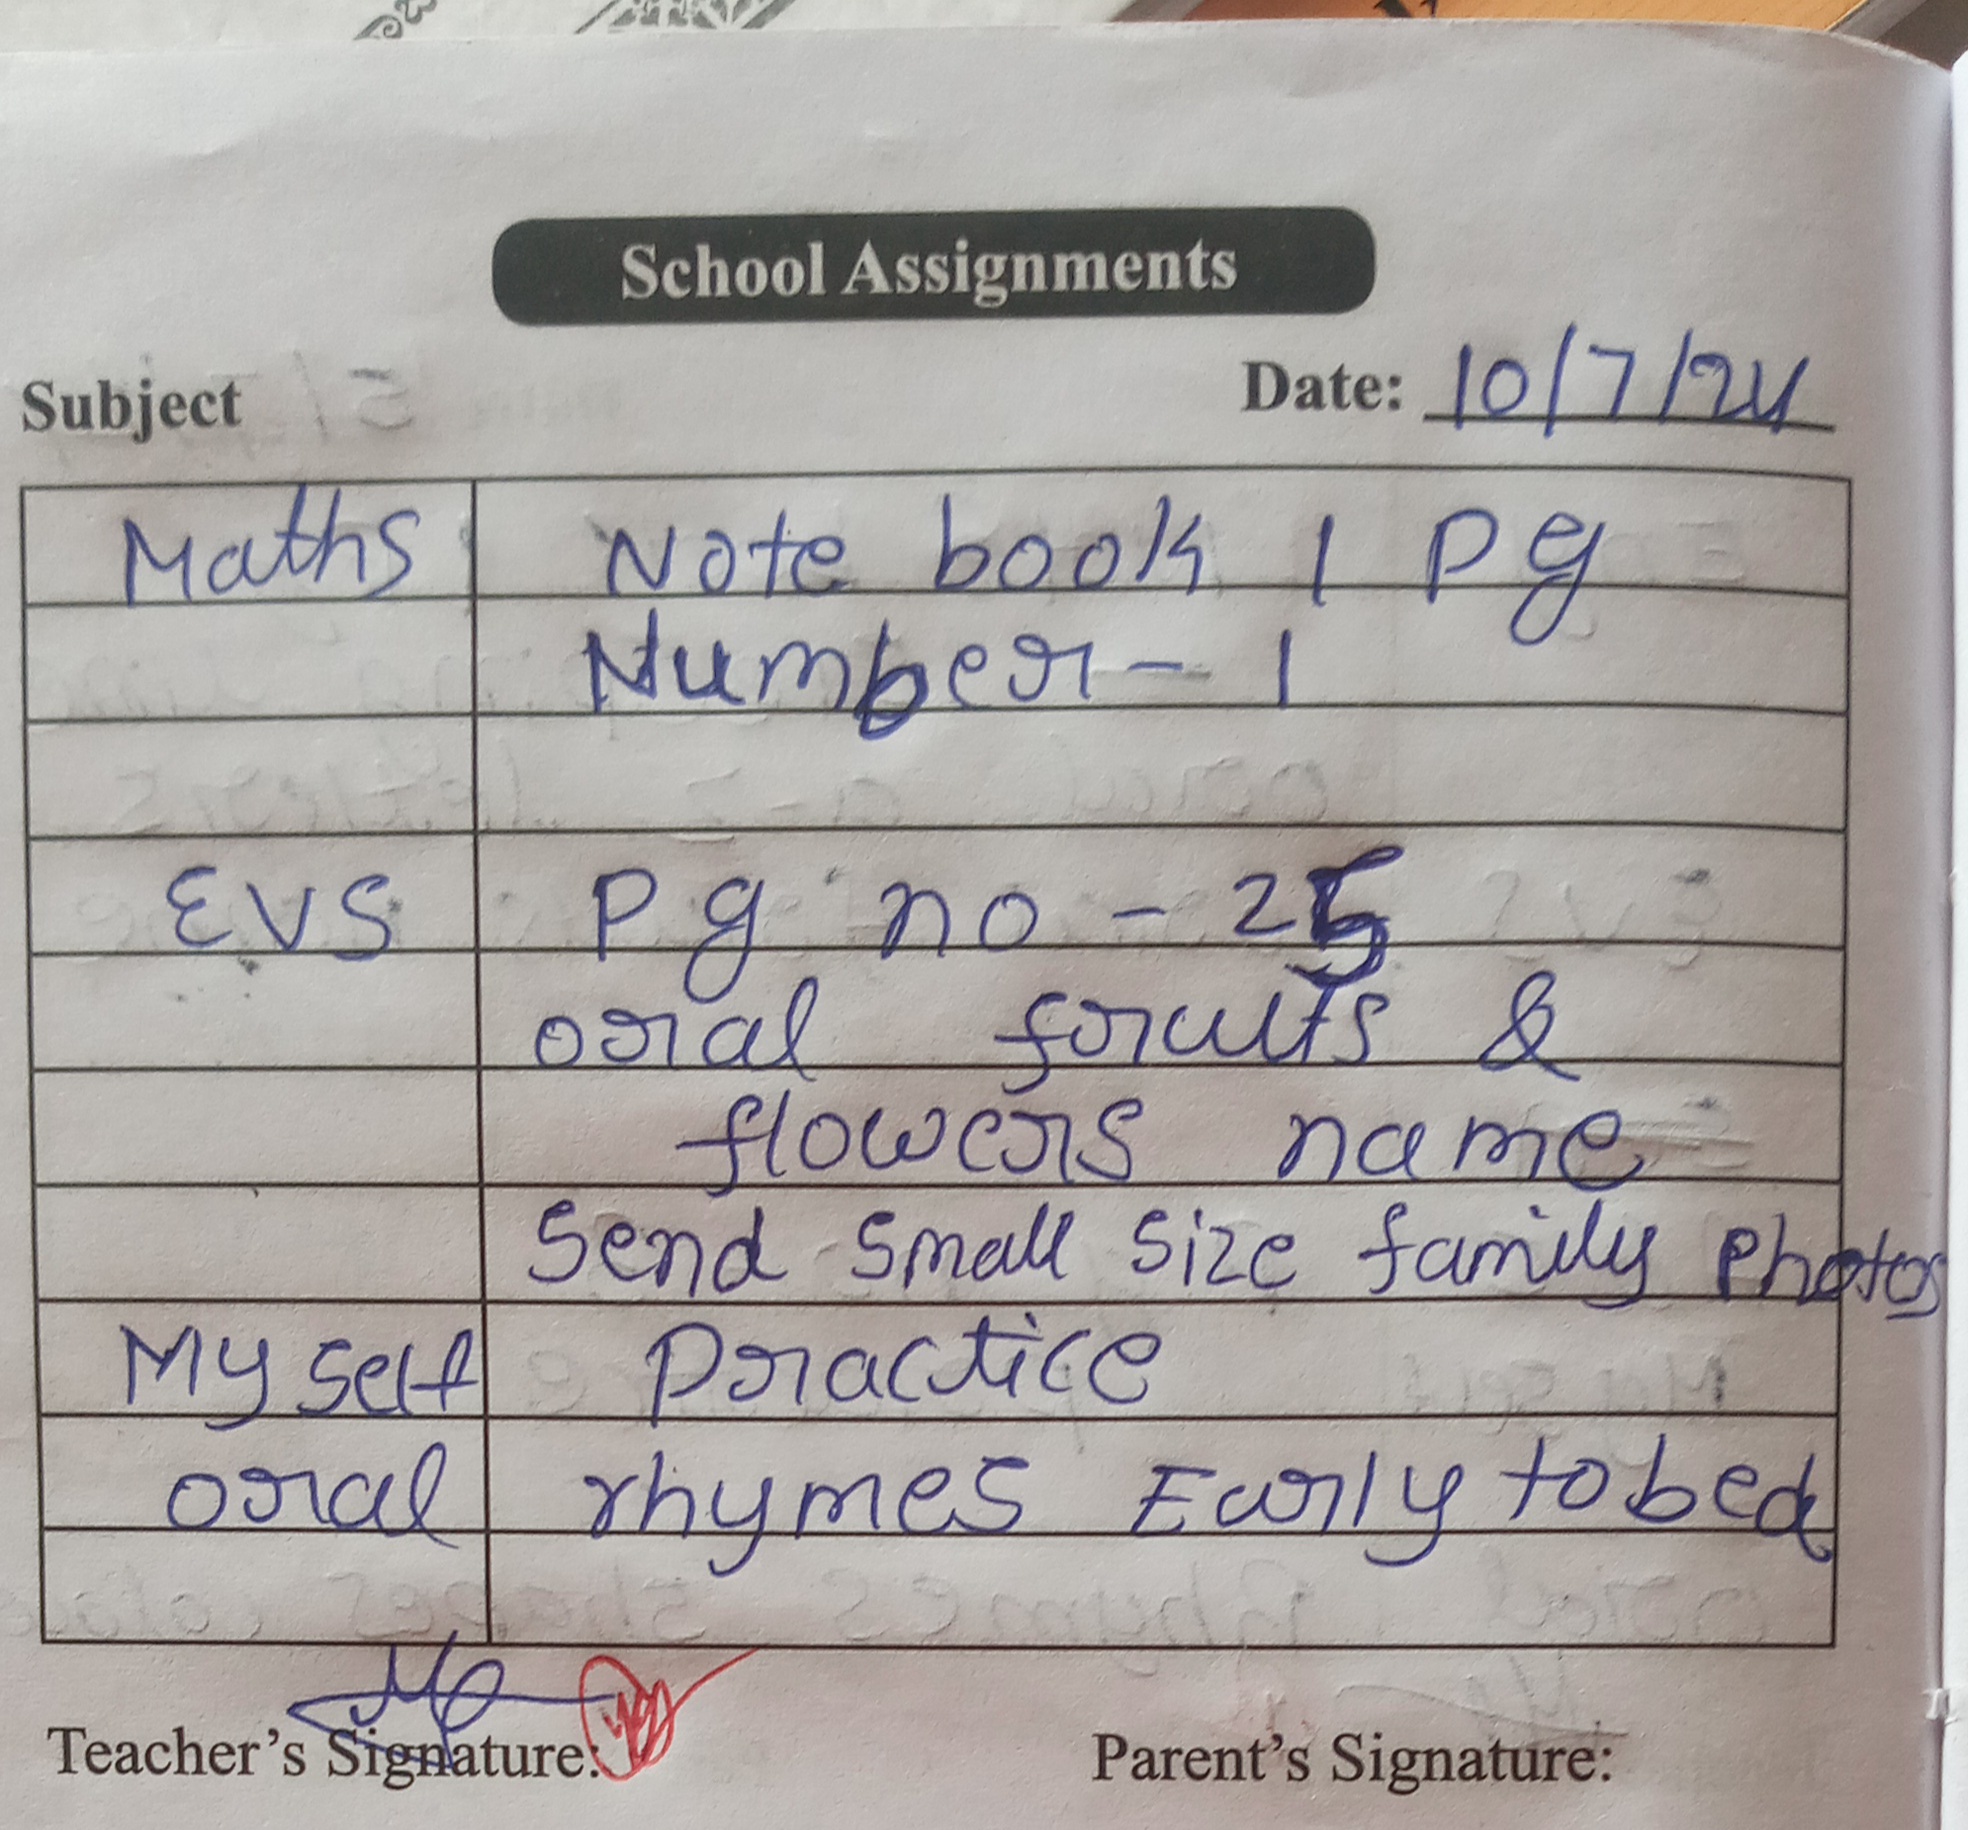 School Assignments
Subject Date: 10/7/24
Maths Note book 1 Pg
Number - 1
EVS Pg no - 25
oral fruits &
flowers name
Send Small Size family Photos
My self Practice
oral rhymes Early to bed
Teacher's Signature: Parent's Signature: